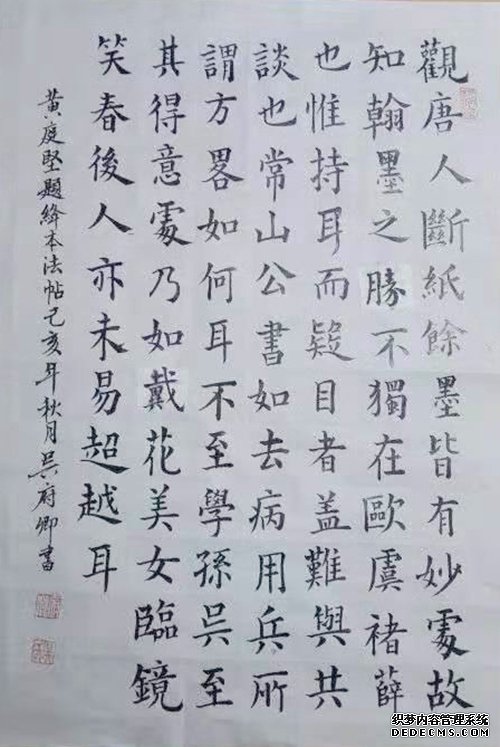 觀唐人斷紙餘墨皆有妙處故
知翰墨之勝不獨在歐虞褚薛
也惟持耳而疑目者蓋難與共
談也常山公書如去病用兵所
謂方畧如何耳不至學孫吳至
其得意處乃如戴花美女臨鏡
笑春後人亦未易超越耳
黃庭堅題絳本法帖己亥年秋月吳府卿書
织梦内容管理系统
DEDECMS.COM